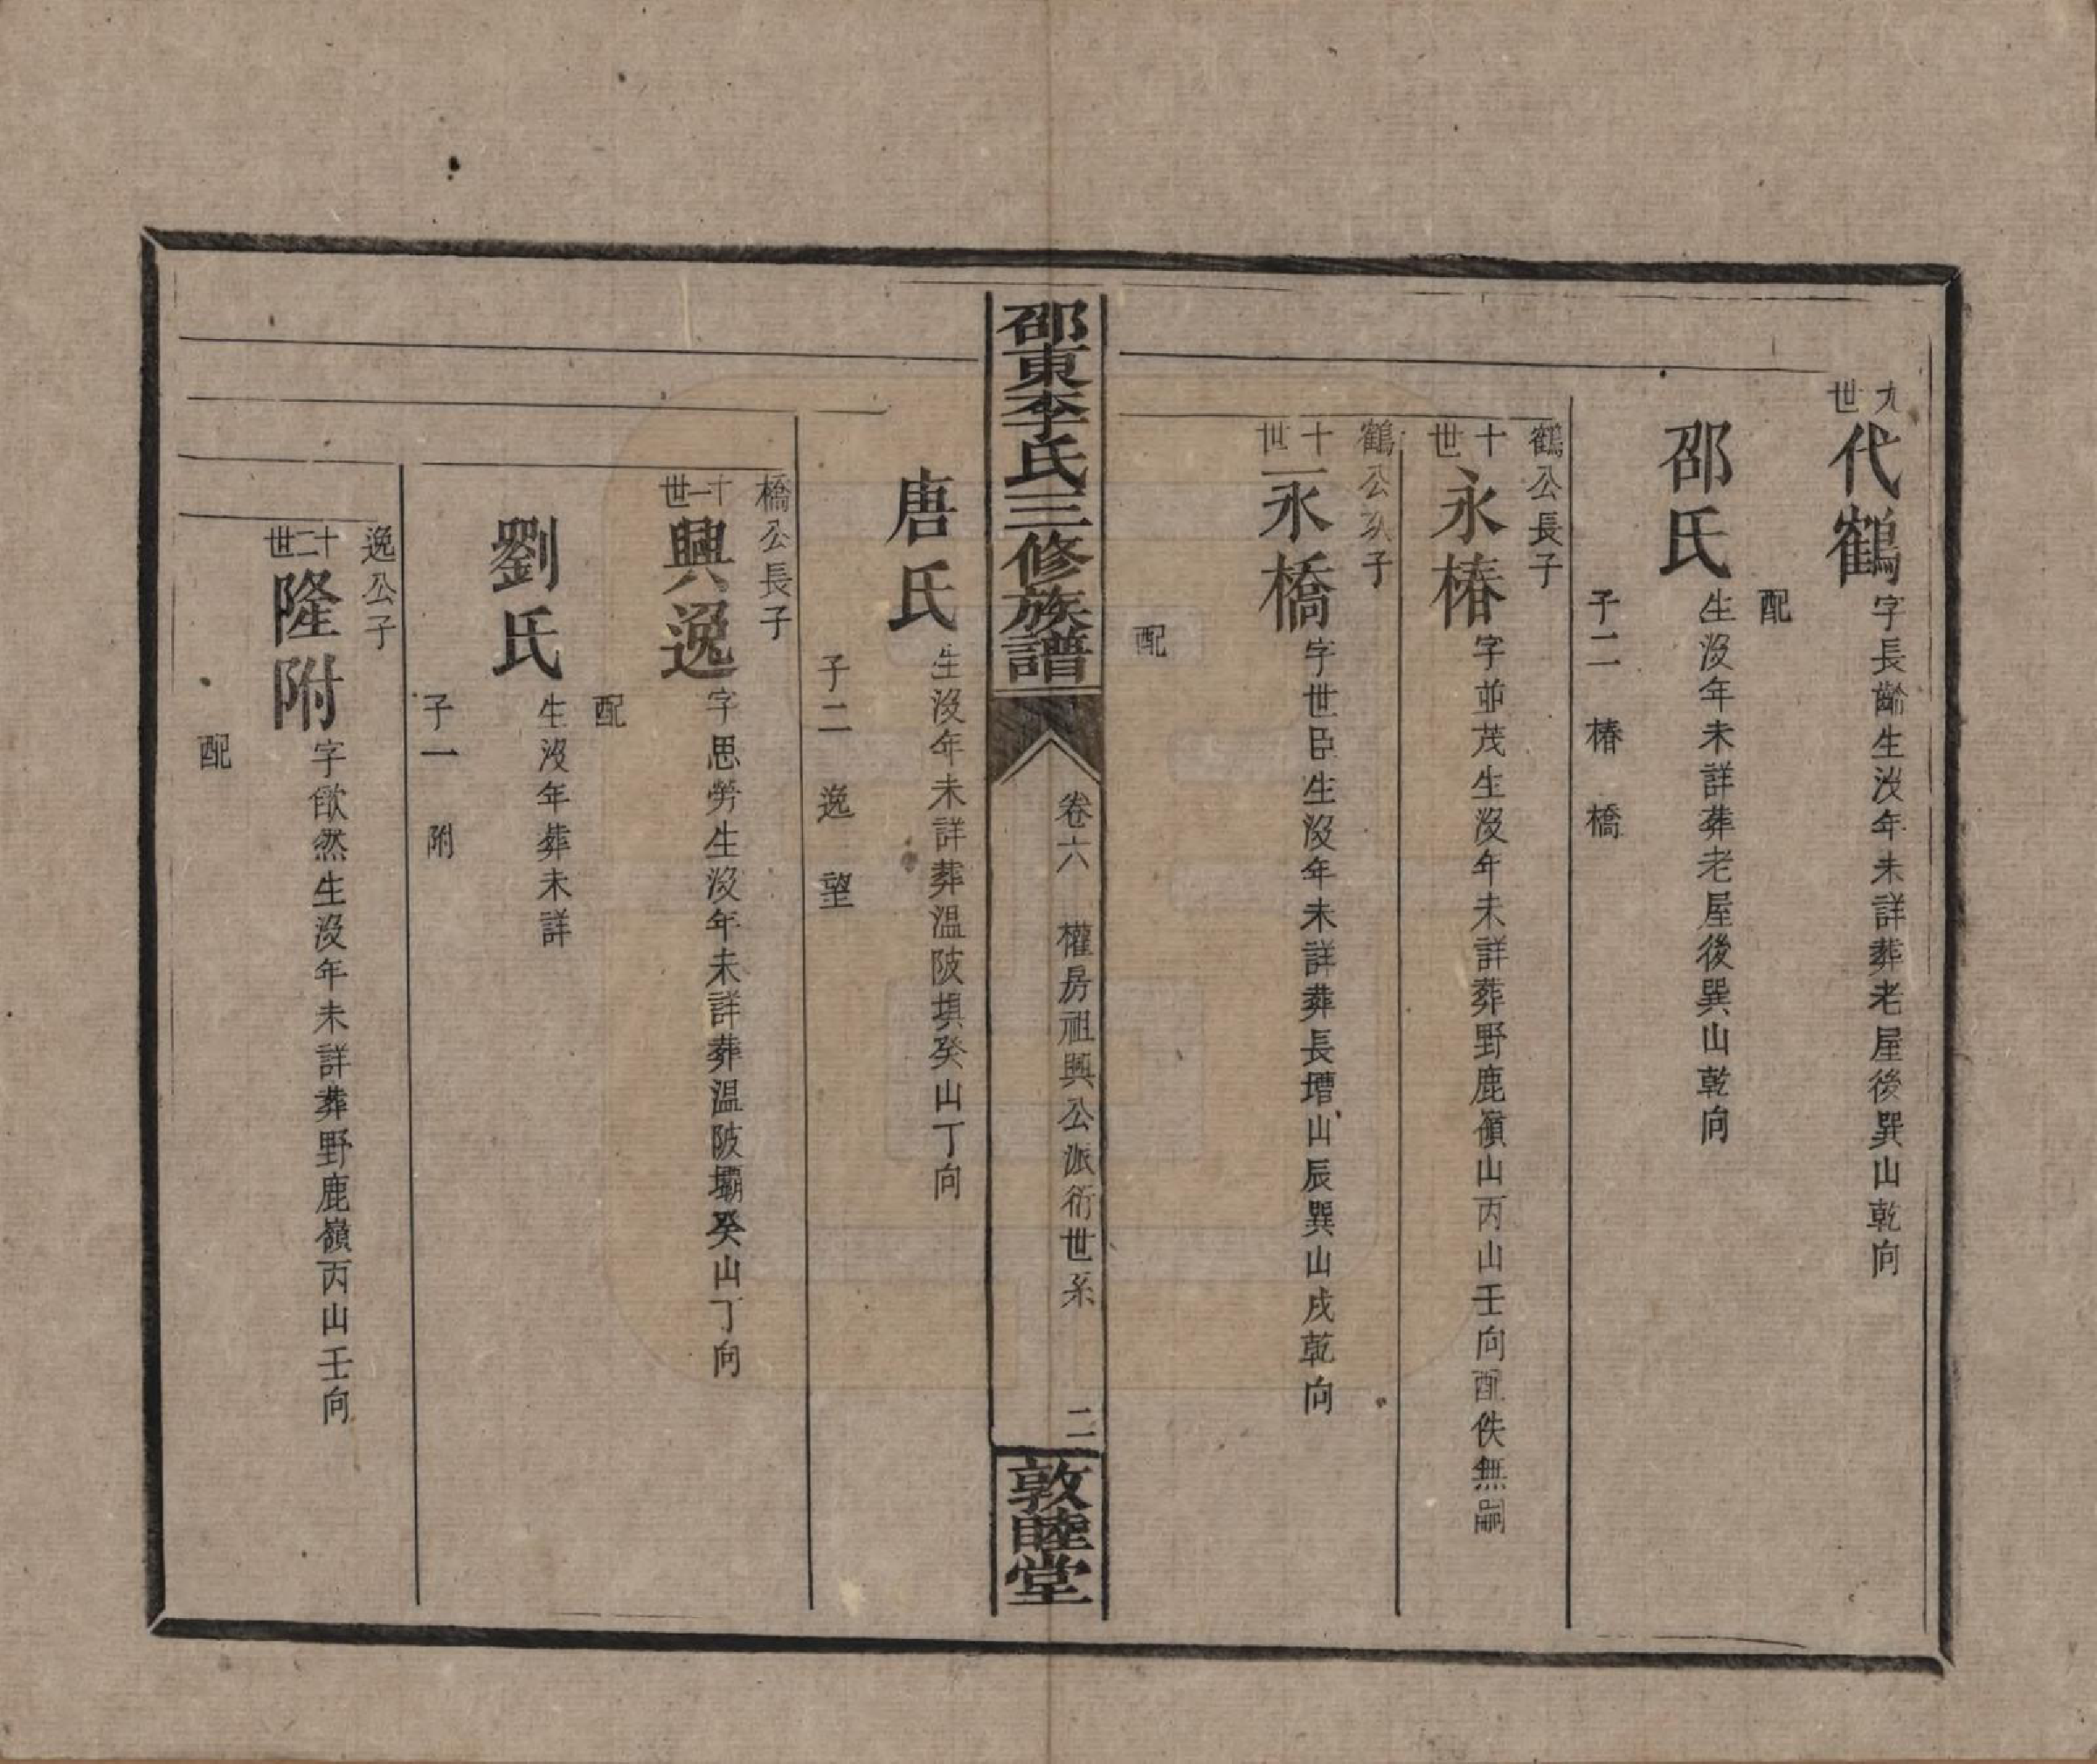 九世
代鶴字長齡生沒年未詳葬老屋後巽山乾向
配
邵氏生沒年未詳葬老屋後巽山乾向
子二 椿 橋
鶴公長子
十世
永椿字並茂生沒年未詳葬野鹿嶺山丙山壬向配佚無嗣
鶴公次子
十世
永橋字世臣生沒年未詳葬長壋山辰巽山戌乾向
配
邵東李氏三修族譜
卷六 權房祖興公派衍世系 二
敦睦堂
唐氏生沒年未詳葬温陂埧癸山丁向
子二 逸 望
橋公長子
十一世
興逸字思勞生沒年未詳葬温陂壩癸山丁向
配
劉氏生沒年葬未詳
子一 附
逸公子
十二世
隆附字歛然生沒年未詳葬野鹿嶺丙山壬向
配